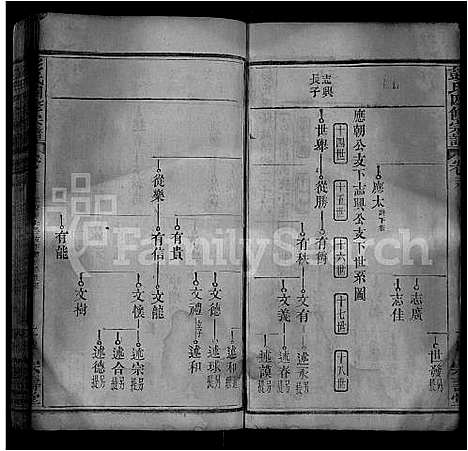 應太
志廣
志佳
世發
另提
應朝公支下志興公支下世系圖
十四世
十五世
十六世
十七世
十八世
志興長子
世舉
從勝
有秩
文有
文義
述永
述春
述謨
從樂
有貴
有信
有能
文德
文禮
文龍
文懷
文樹
述和
述球
述和
述宗
述合
述德
FamilySearch